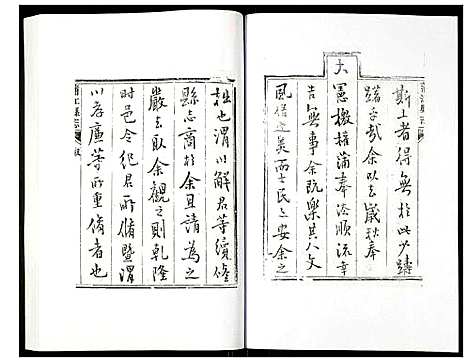 斯土者得無於此少躊
躇乎哉余以去歲秋奉
大憲檄權蒲奉渝順流幸
告無事余既樂其人文
風俗之美而士民之安余之
拙也渭川解君等續修
縣志商於余且請為之
嚴去取余觀之則乾隆
時邑令紀君所脩暨渭
川孝廉等所重脩者也